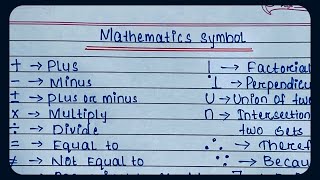 Mathematics symbol
+ → Plus
- → Minus
± → plus orc minus
× → Multiply
÷ → Divide
= → Equal to
≠ → Not Equal to
! → Factorial
⊥ → Perpendicu
∪ → Union of two
∩ → Intersection
two sets
∴ → Theref
∵ → Becau